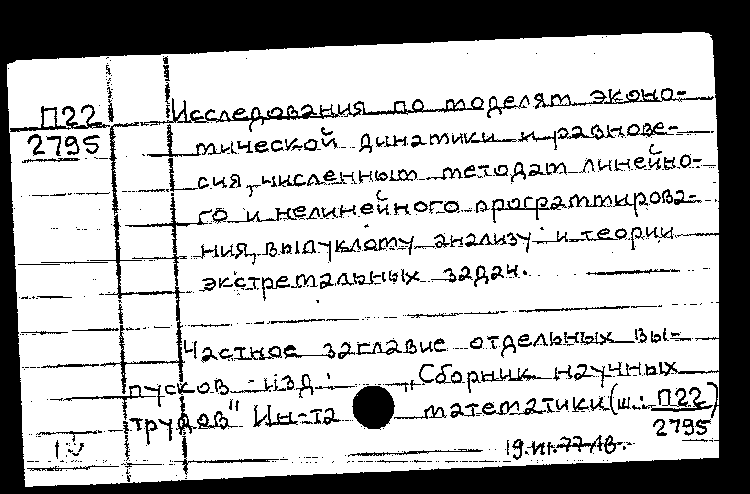 П22
2795
Исследования по моделям эконо-
мической динамики и равнове-
сия, численным методам линейно-
го и нелинейного программирова-
ния, выпуклому анализу и теории
экстремальных задач.
Частное заглавие отдельных вы-
пусков изд.: „Сборник научных
трудов" Ин-та математики (ш.: П22)
2795